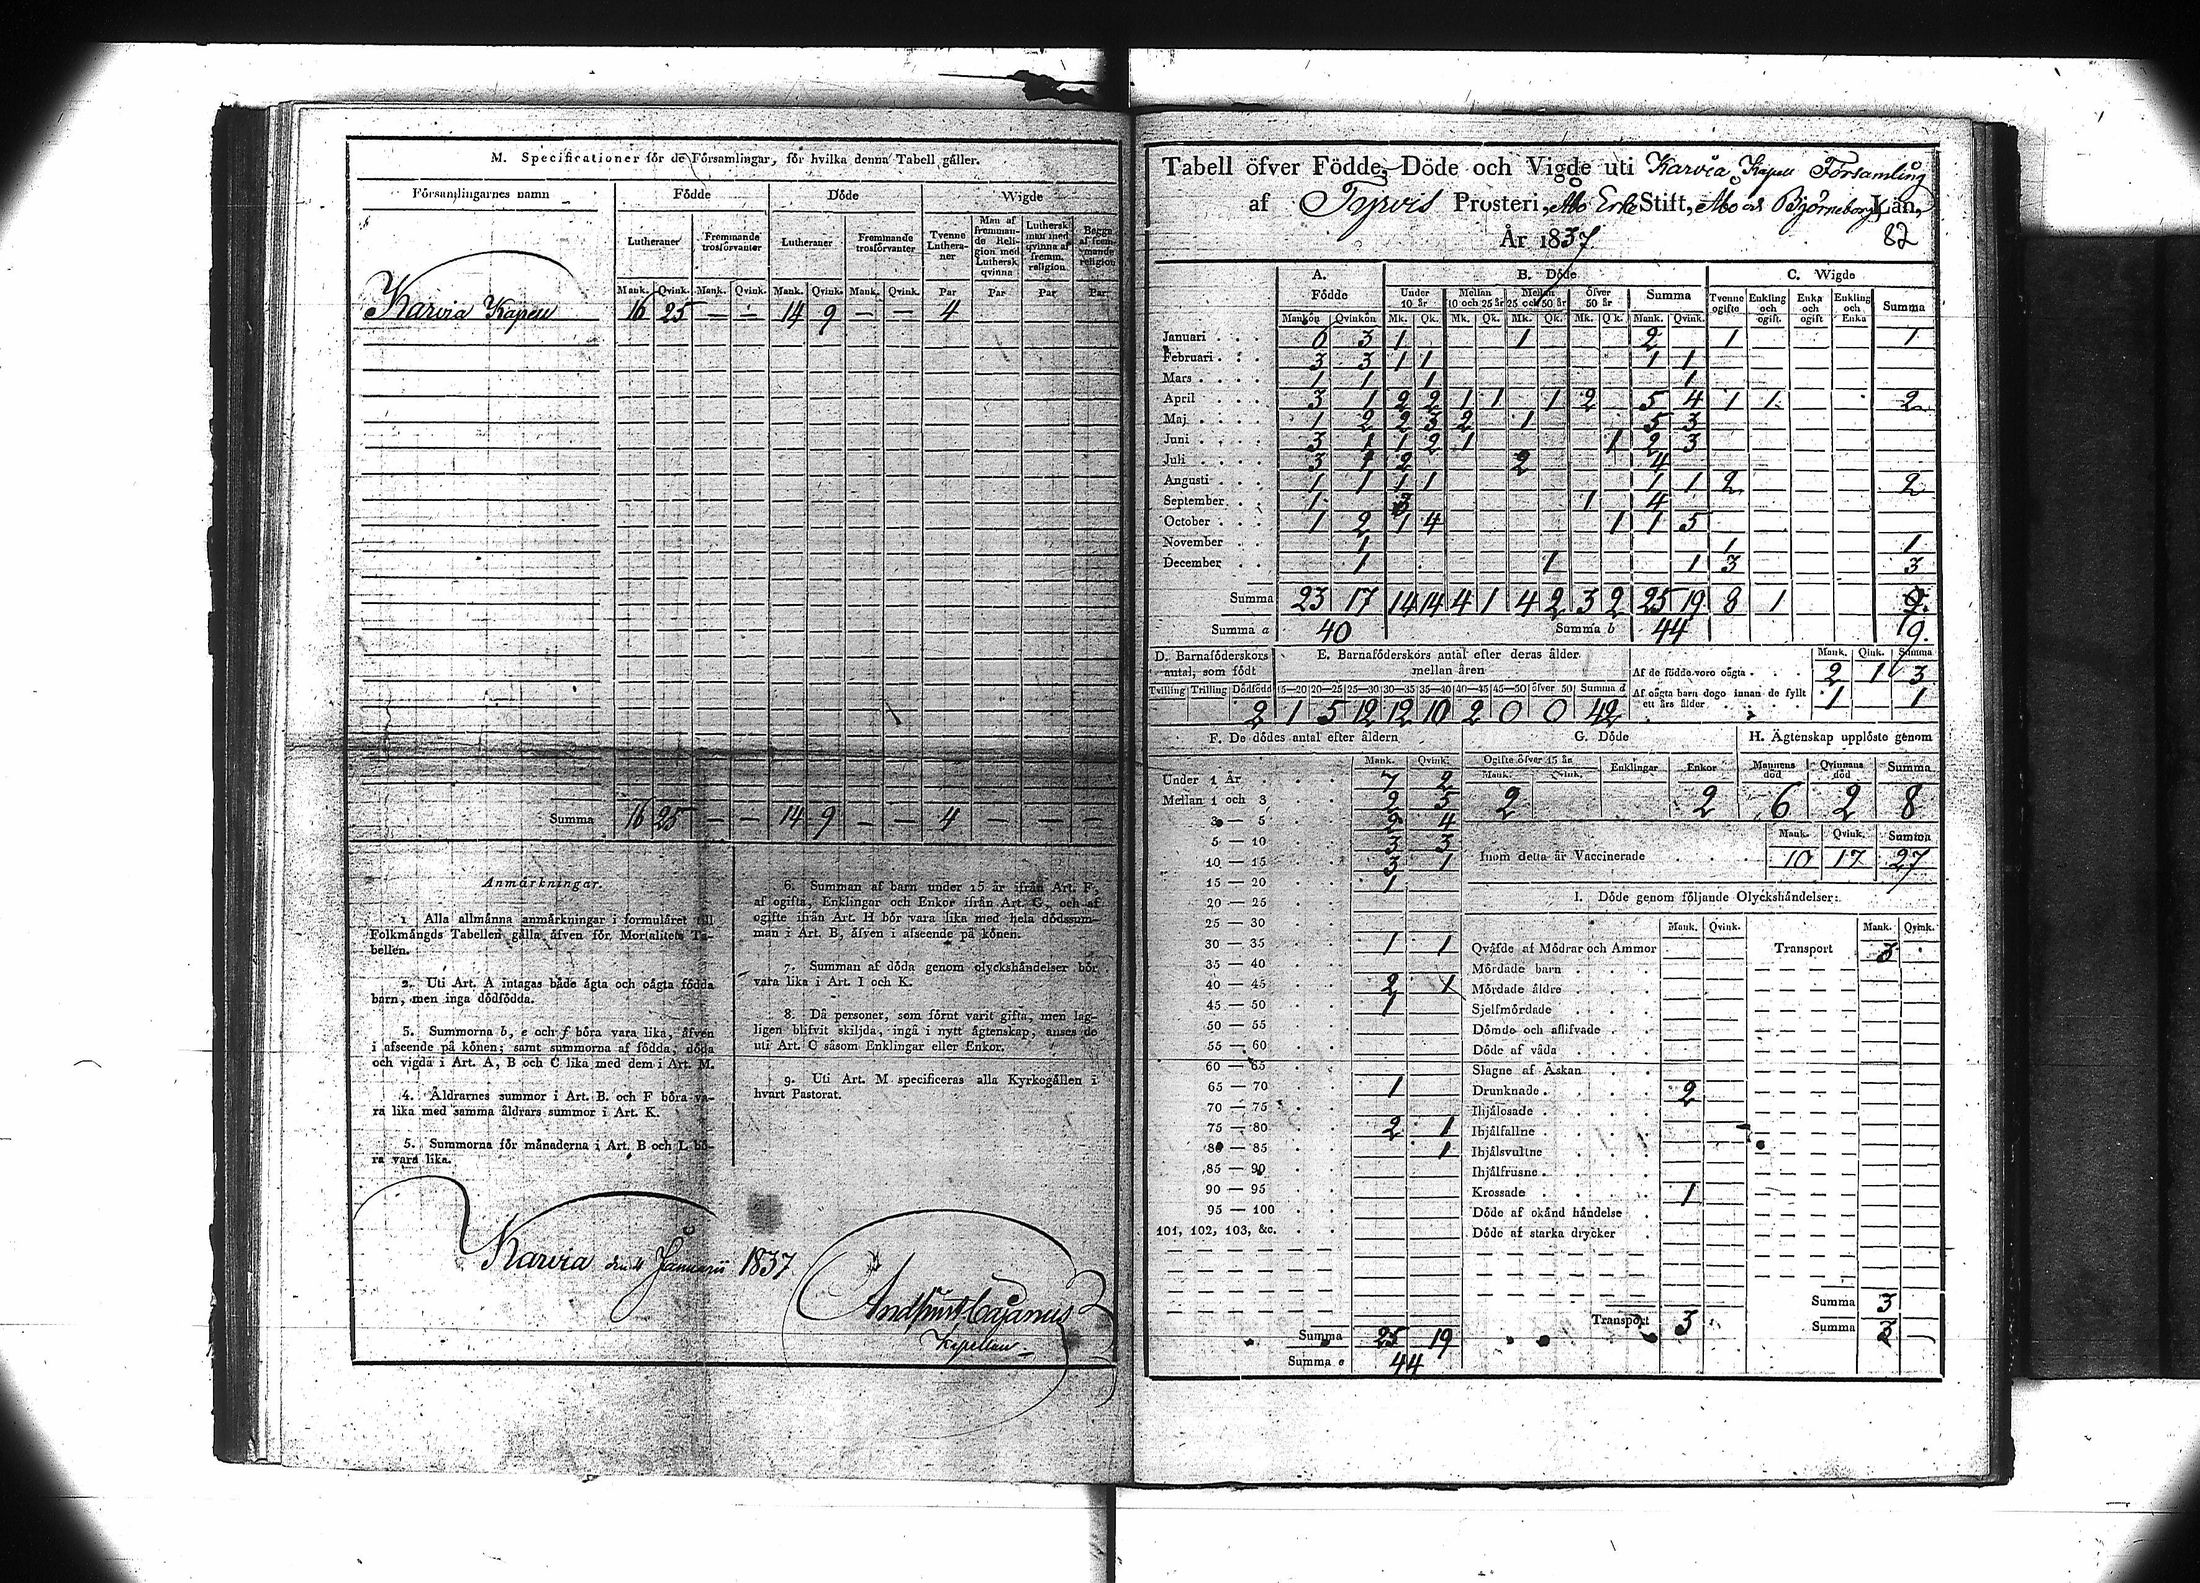 M. Specificationer för de Församlingar, för hvilka denna Tabell gäller.
Församlingarnes namn Födde Döde Wigde
Lutheraner Fremmande trosförvanter Lutheraner Fremmande trosförvanter Tvenne Lutheraner Man af fremmande Religion med Luthersk qvinna Luthersk man med qvinna af fremm. religion Begge af fremmande religion
Mank. Qvink. Mank. Qvink. Mank. Qvink. Mank. Qvink. Par Par Par Par
Karvia Kapell 16 25 — — 14 9 — — 4
Summa 16 25 — — 14 9 — — 4 — — —
Anmärkningar.
1. Alla allmänna anmärkningar i formuläret till
Folkmängds Tabellen gälla äfven för Mortalitets Ta-
bellen.
2. Uti Art. A intagas både ägta och oägta födda
barn, men inga dödfödda.
3. Summorna b, e och f böra vara lika, äfven
i afseende på könen; samt summorna af födda, döda
och vigda i Art. A, B och C lika med dem i Art. M.
4. Åldrarnes summor i Art. B. och F böra va-
ra lika med samma åldrars summor i Art. K.
5. Summorna för månaderna i Art. B och L bö-
ra vara lika.
6. Summan af barn under 15 år ifrån Art. F,
af ogifta, Enklingar och Enkor ifrån Art. G, och af
ogifte ifrån Art. H bör vara lika med hela dödssum-
man i Art. B, äfven i afseende på könen.
7. Summan af döda genom olyckshändelser bör
vara lika i Art. I och K.
8. Då personer, som förut varit gifta, men lag-
ligen blifvit skiljda, ingå i nytt ägtenskap, anses de
uti Art. C såsom Enklingar eller Enkor.
9. Uti Art. M specificeras alla Kyrkogällen i
hvart Pastorat.
Karvia den 4 Januarii 1837
Cajanus
Kapellan
Tabell öfver Födde, Döde och Vigde uti Karvia Kapell Församling
af Tyrvis Prosteri, Åbo Erke Stift, Åbo och Björneborgs Län,
År 1837
82
A. B. Döde C. Wigde
Födde Under 10 år Mellan 10 och 25 år Mellan 25 och 50 år öfver 50 år Summa Tvenne ogifte Enkling och ogift. Enka och ogift Enkling och Enka Summa
Mankön Qvinkön Mk. Qk. Mk. Qk. Mk. Qk. Mk. Qk. Mank. Qvink.
Januari 6 3 1 1 2 1 1
Februari 3 3 1 1 1 1
Mars 1 1 1 1
April 3 1 2 2 1 1 1 2 5 4 1 1 2
Maj 1 2 2 3 2 1 5 3
Juni 3 1 1 2 1 1 2 3
Juli 3 1 2 2 4
Augusti 1 1 1 1 1 1 2 2
September 1 3 1 4
October 1 2 1 4 1 1 5
November 1 1 1
December 1 1 1 3 3
Summa 23 17 14 14 4 1 4 2 3 2 25 19 8 1 9
Summa a 40 Summa b 44 9.
D. Barnaföderskors antal, som födt E. Barnaföderskors antal efter deras ålder mellan åren Mank. Qink. Summa
Af de födde voro oägta 2 1 3
Tvilling Trilling Dödfödd 15—20 20—25 25—30 30—35 35—40 40—45 45—50 öfver 50 Summa d
Af oägta barn dogo innan de fyllt ett års ålder 1 1
2 1 5 12 12 10 2 0 0 42
F. De dödes antal efter åldern G. Döde H. Ägtenskap upplöste genom
Mank. Qvink. Ogifte öfver 15 år Enklingar Enkor Mannens död Qvinnans död Summa
Mank. Qvink.
2 2 6 2 8
Under 1 År 7 2
Mellan 1 och 3 2 5
3 — 5 2 4
5 — 10 3 3
10 — 15 3 1
15 — 20 1
20 — 25
25 — 30
30 — 35 1 1
35 — 40
40 — 45 2 1
45 — 50 1
50 — 55
55 — 60
60 — 65
65 — 70 1
70 — 75
75 — 80 2 1
80 — 85 1
85 — 90
90 — 95
95 — 100
101, 102, 103, &c.
Summa 25 19
Summa e 44
Mank. Qvink. Summa
Inom detta år Vaccinerade 10 17 27
I. Döde genom följande Olyckshändelser:
Mank. Qvink. Mank. Qvink.
Qväfde af Mödrar och Ammor Transport 3
Mördade barn
Mördade äldre
Sjelfmördade
Dömde och aflifvade
Döde af våda
Slagne af Åskan
Drunknade 2
Ihjälosade
Ihjälfallne
Ihjälsvultne
Ihjälfrusne
Krossade 1
Döde af okänd händelse
Döde af starka drycker
Summa 3
Transport 3 Summa 3 —